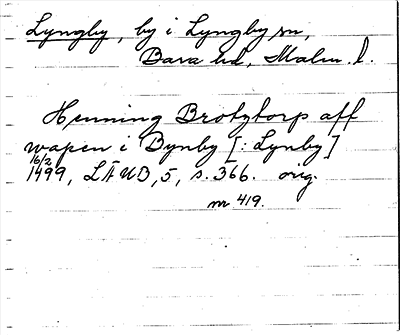 Lyngby, by i Lyngby sn,
Bara hd, Malm. l.
Henning Brotytorp aff
wapen i Bynby [: Lynby]
16/2
1499, LÄUB, 5, s. 366. orig.
nr 419.